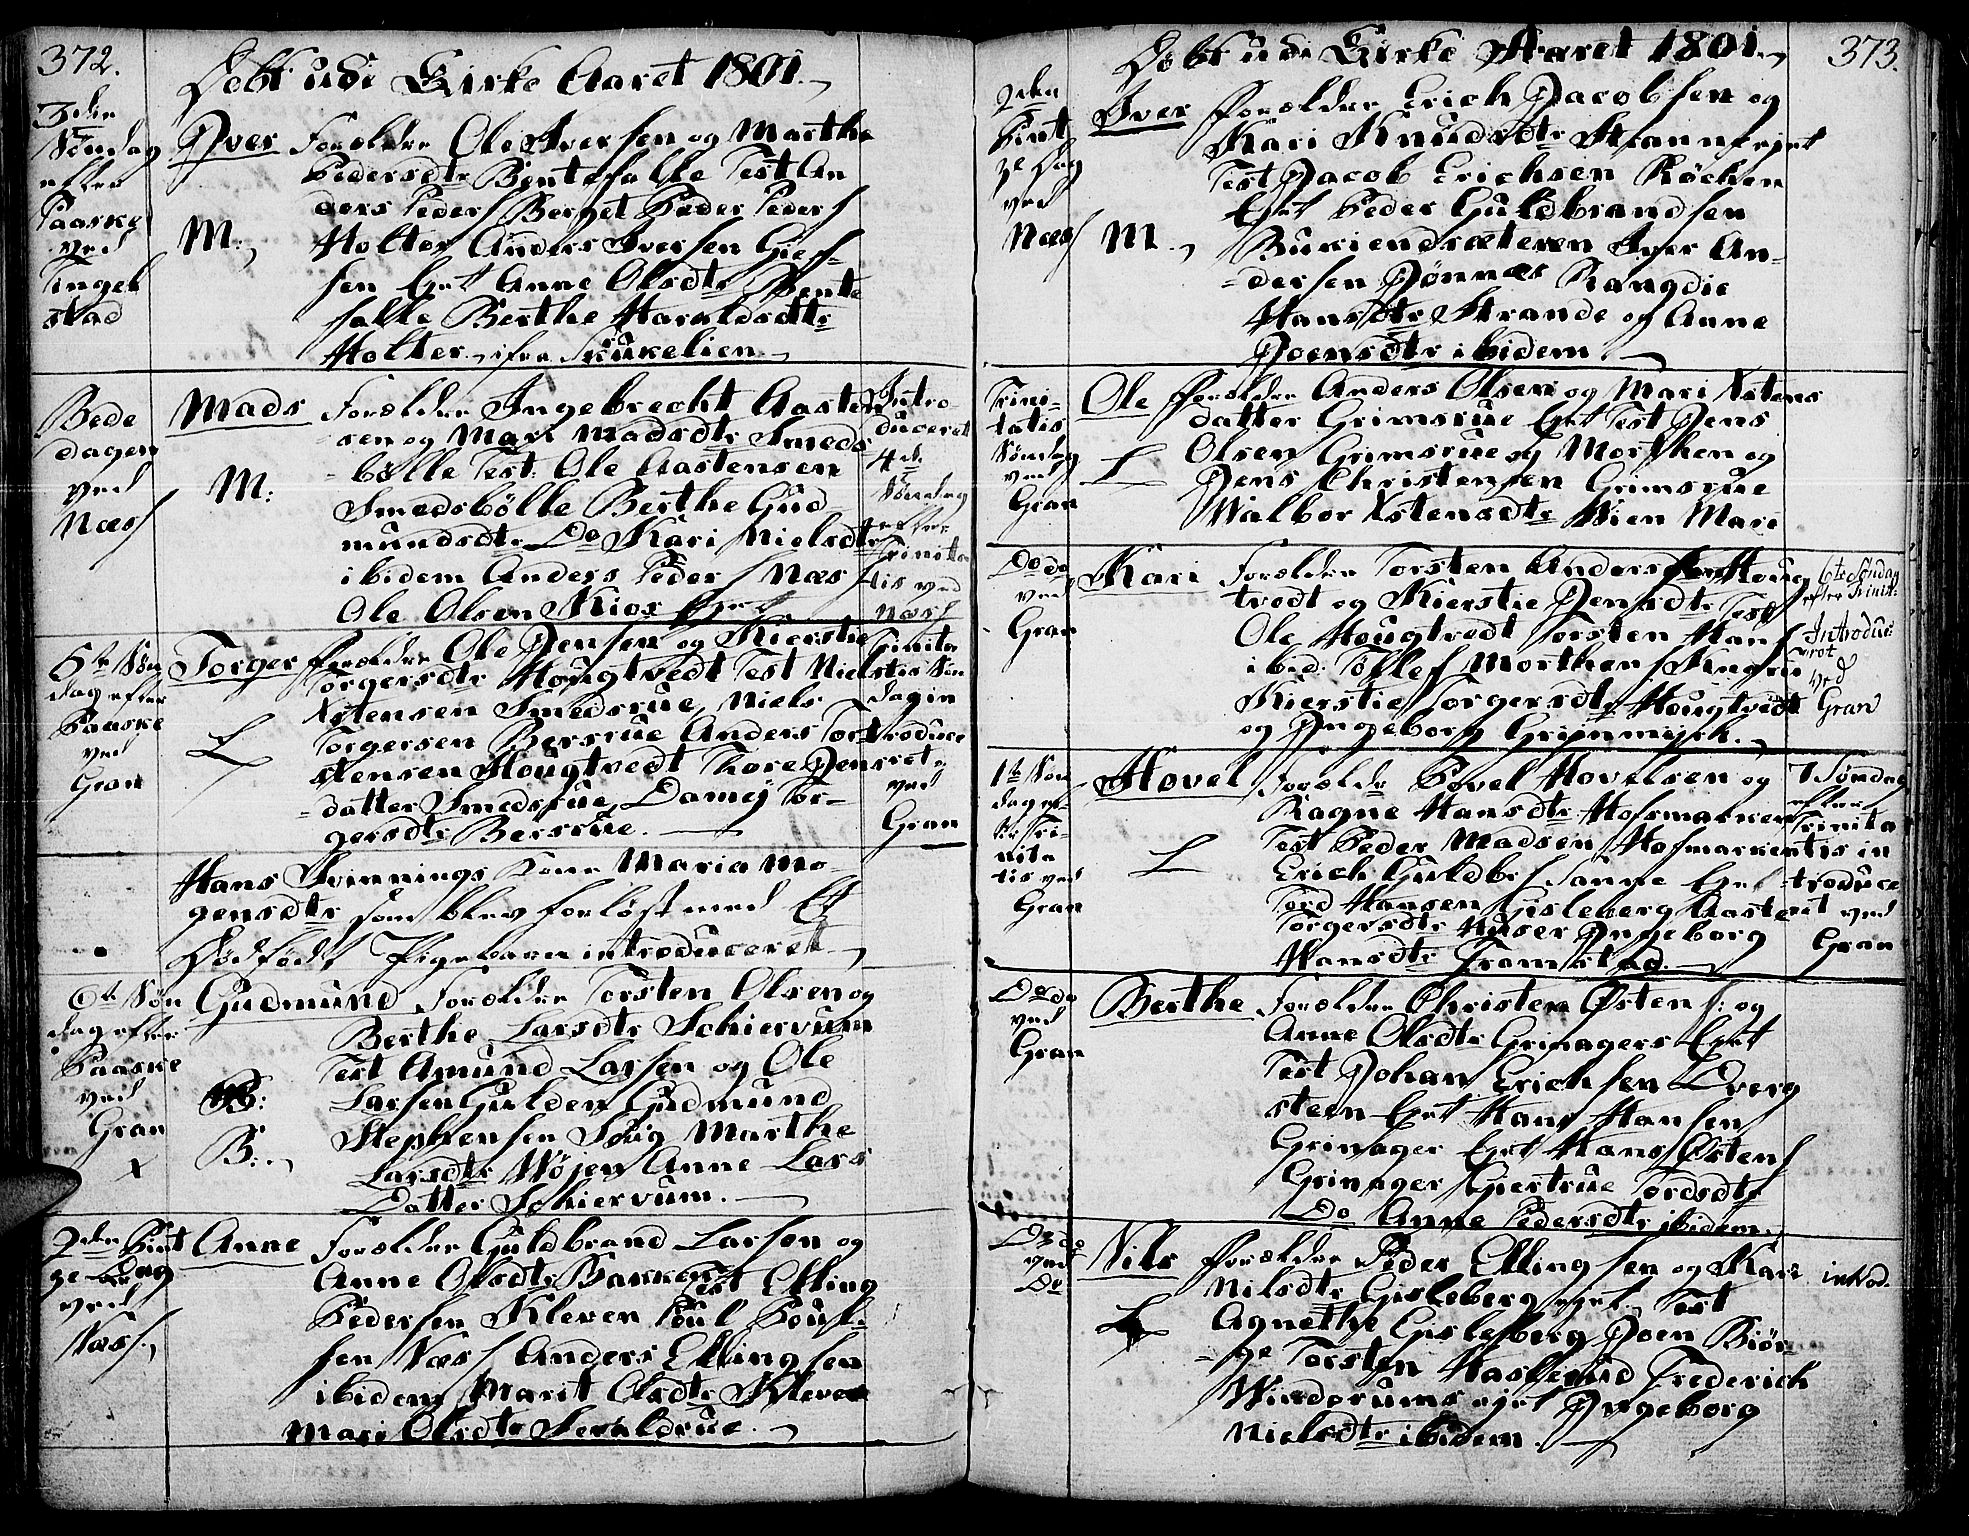 372.
Døbt udi Kirke Aaret 1801.
3die
Søndag
efter
Paaske
ved
Tingel
stad
Iver
M:
Forældre Ole Iversen og Marthe
Pedersdtr Bentefalle Test An
ders Peders Berget Peder Peders
Holter Anders Iversen
sen Eyet Anne Olsdtr Bente
falle Berthe Haraldsdtr
Holter ifra Skukelien
Bede
dagen
ved
Næss
Mads
M:
Forældre Ingebrecht Aasten
sen og Mari Madsdtr Smeds
bølle Test: Ole Aastensen
Smedsbölle Berthe Gud
mundsdtr Do Kari Nielsdtr
ibidem Anders Peders Næss
Ole Olsen Kios Eyet
Intro
duceret
4de
Søndag
efter
Trinita
tis ved
Næss
5te Søn
dag efter
Paaske
ved
Gran
Torger
L
Forældre Ole Jensen og Kierstie
Torgersdtr Hougtvedt Test Niels
Xstensen Smedsrue, Niels
Torgersen Bersrue Anders Tor
stensen Hougtvedt Thore Jens
datter Smedsrue, Damej Tor-
gersdtr Bersrue.
Trinita
tis Søn
dag in
troduce
ret
ved
Gran
Hans Svinnings Kone Maria Mo
gensdtr som blev forløst med Et
Dødfødt Pigebarn introduceret
6te Søn
dag efter
Paaske
ved
Gran
x
Gudmund
B:
B:
Forældre Torsten Olsen og
Berthe Larsdtr Schiervum
Test Amund Larsen og Ole
Larsen Gulden Gudmund
Stephensen Marthe
Larsdtr Wøjen Anne Lars
Datter Schiervum.
2den Pint
ze Dag
ved
Næss
Anne
Forældre Guldbrand Larsen og
Anne Olsdtr Barken Test Elling
Pedersen Kleven Poul Poul-
sen Næss Anders Ellingsen
ibidem Marit Olsdtr Kleven
Mari Olsdtr
373.
Døbt udi Kirke Aaret 1801.
2den
Pint
ze Dag
ved
Næss
Iver
M.
Forældre Erich Jacobsen og
Kari Knudsdtr
Test Jacob Erichsen Röchen
Eyet Peder Guldbrandsen
Iver An-
dersen Rangdie
Hansdtr Strande og Anne
Joensdtr ibidem.
Trini-
tatis
Søndag
ved
Gran
Ole
L
Forældre Anders Olsen og Mari Xstens
datter Grimsrue Eyet Test Jens
Olsen Grimsrue og Morthen og
Jens Christensen Grimsrue
Walbor Xstensdtr Wien Mari
Do do
ved
Gran
Kari
Forældre Torsten Andersen Houg
tvedt og Kierstie Jensdtr Test
Ole Hougtvedt Torsten Hans
ibid: Tollef Morthens
Kierstie Torgersdtr Hougtvedt
og Ingeborg
6te Søndag
efter Trinit:
Introdu
ceret
ved
Gran
1te Søn
dag ef-
ter Tri-
nita
tis ved
Gran
Hovel
L
Forældre Povel Hovelsen og
Ragne Hansdtr Hofsmarken
Test Peder Madsen Hofmarken
Erich Guldbr Sanne Eyet
Tord Hansen Gisleberg Aaste
Torgersdtr Huser Ingeborg
Hansdtr Framstad.
7 Søndag
efter
Trinita
tis in
troduce
ret ved
Gran
Do do
ved
Gran
Berthe
Forældre Christen Østens: og
Anne Olsdtr Grinagers Eyet
Test Johan Erichsen Dverg
steen Eyet Hans Hansen
Grinager Eyet Hans Østens
Grinager Giertrue Tordsdtr
Do Anne Pedersdtr ibidem.
Do do
ved
Do
Nils
L
Forældre Peder Ellingsen og Kari
Nilsdtr Gisleberg eyet Test
Agnethe Gisleberg Joen Biör-
ge Torsten Haslerud Frederich
Windorums ejet Ingeborg
Nielsdtr ibidem.
introd.